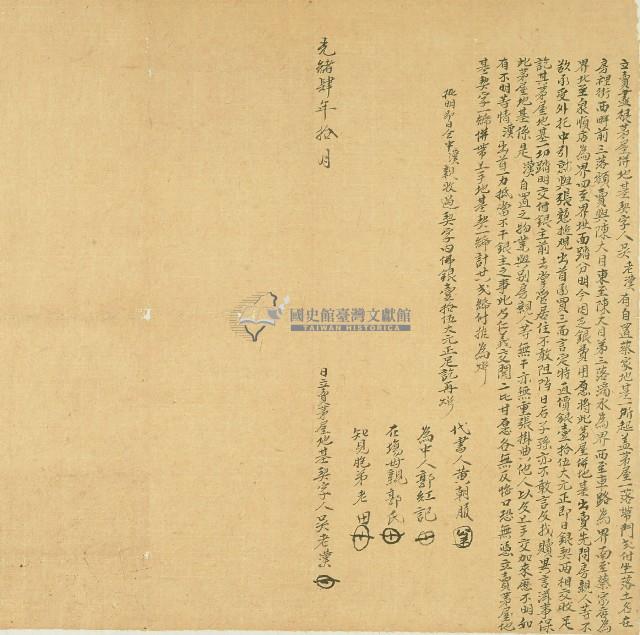 立賣盡根茅屋併地基契字人吳老漢有自置蔡家地基一所起蓋茅屋一落帶門戈付坐落土名在
房裡街西畔前三落額賣與陳大目東至陳大目第三落滴水為界西至車路為界南至蔡宗唐為
界北至泉順店為界四至界址面踏分明今因乏銀費用愿將此茅屋併地基出賣先問房親人等不
欲承受外托中引就與張 出首承買三面言定時值價銀壹拾伍大元正即日銀契兩相交收足
訖其茅屋地基一切踏明交付銀主前去掌管居住不敢阻擋日后子孫亦不敢言及找贖異言滋事保
此茅屋地基係是漢自置之物業與別房親人等無干亦無重張掛他人以及上手交加來歷不明如
有不明等情漢出首一力抵當不干銀主之事此乃仁義交關二比甘愿各無反悔口恐無憑立賣茅屋地
基契字一紙併帶上手地基契一紙計共弍紙付執為炤
批明即日仝中漢親收過契字內佛銀壹拾伍大元正足訖再炤
代書人黃朝服
為中人郭紅記
在場母親郭氏
知見胞弟老田
光緒肆年拾月 日立賣茅屋地基契字人吳老漢
國史館臺灣文獻館
TAIWAN HISTORICA